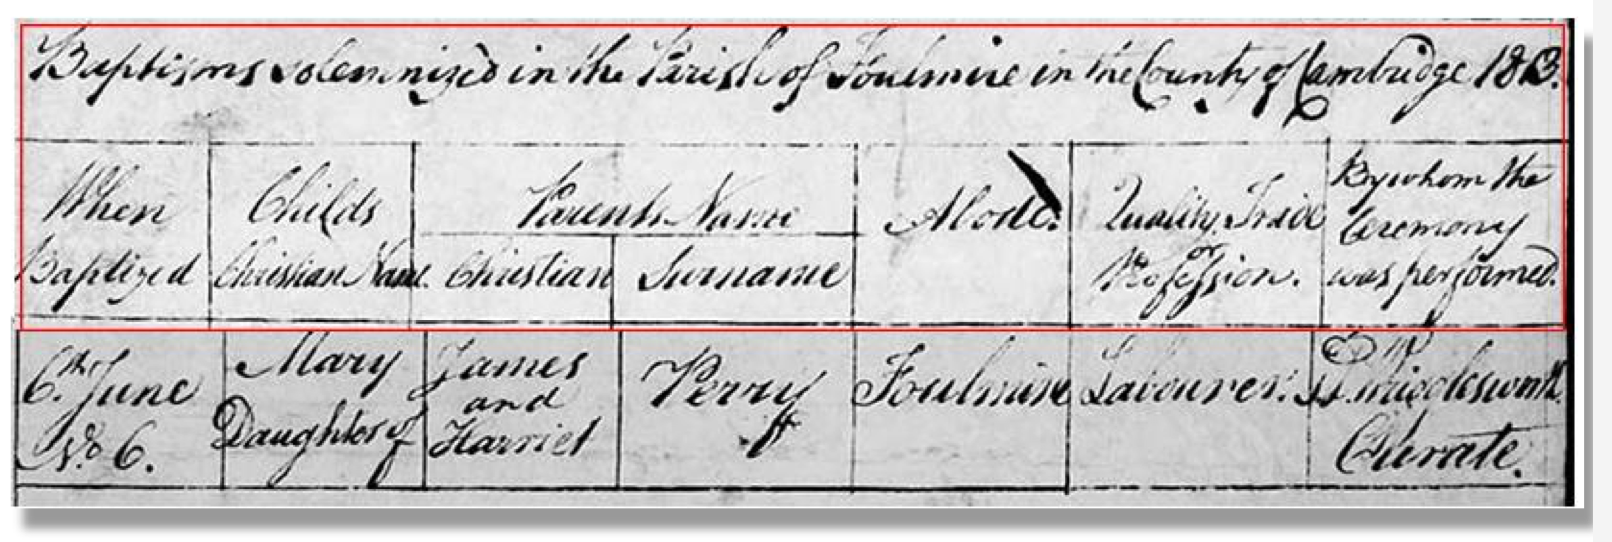 Baptisms solemnized in the Parish of Foulmire in the County of Cambridge 1813.
When
Baptized
Childs
Christian Name.
Parents Name
Christian
Surname
Abode.
Quality, Trade
or
Profession.
By whom the
Ceremony
was performed.
6.th June
No. 6.
Mary
Daughter of
James
and
Harriet
Perry
Foulmire
Labourer.
Curate.